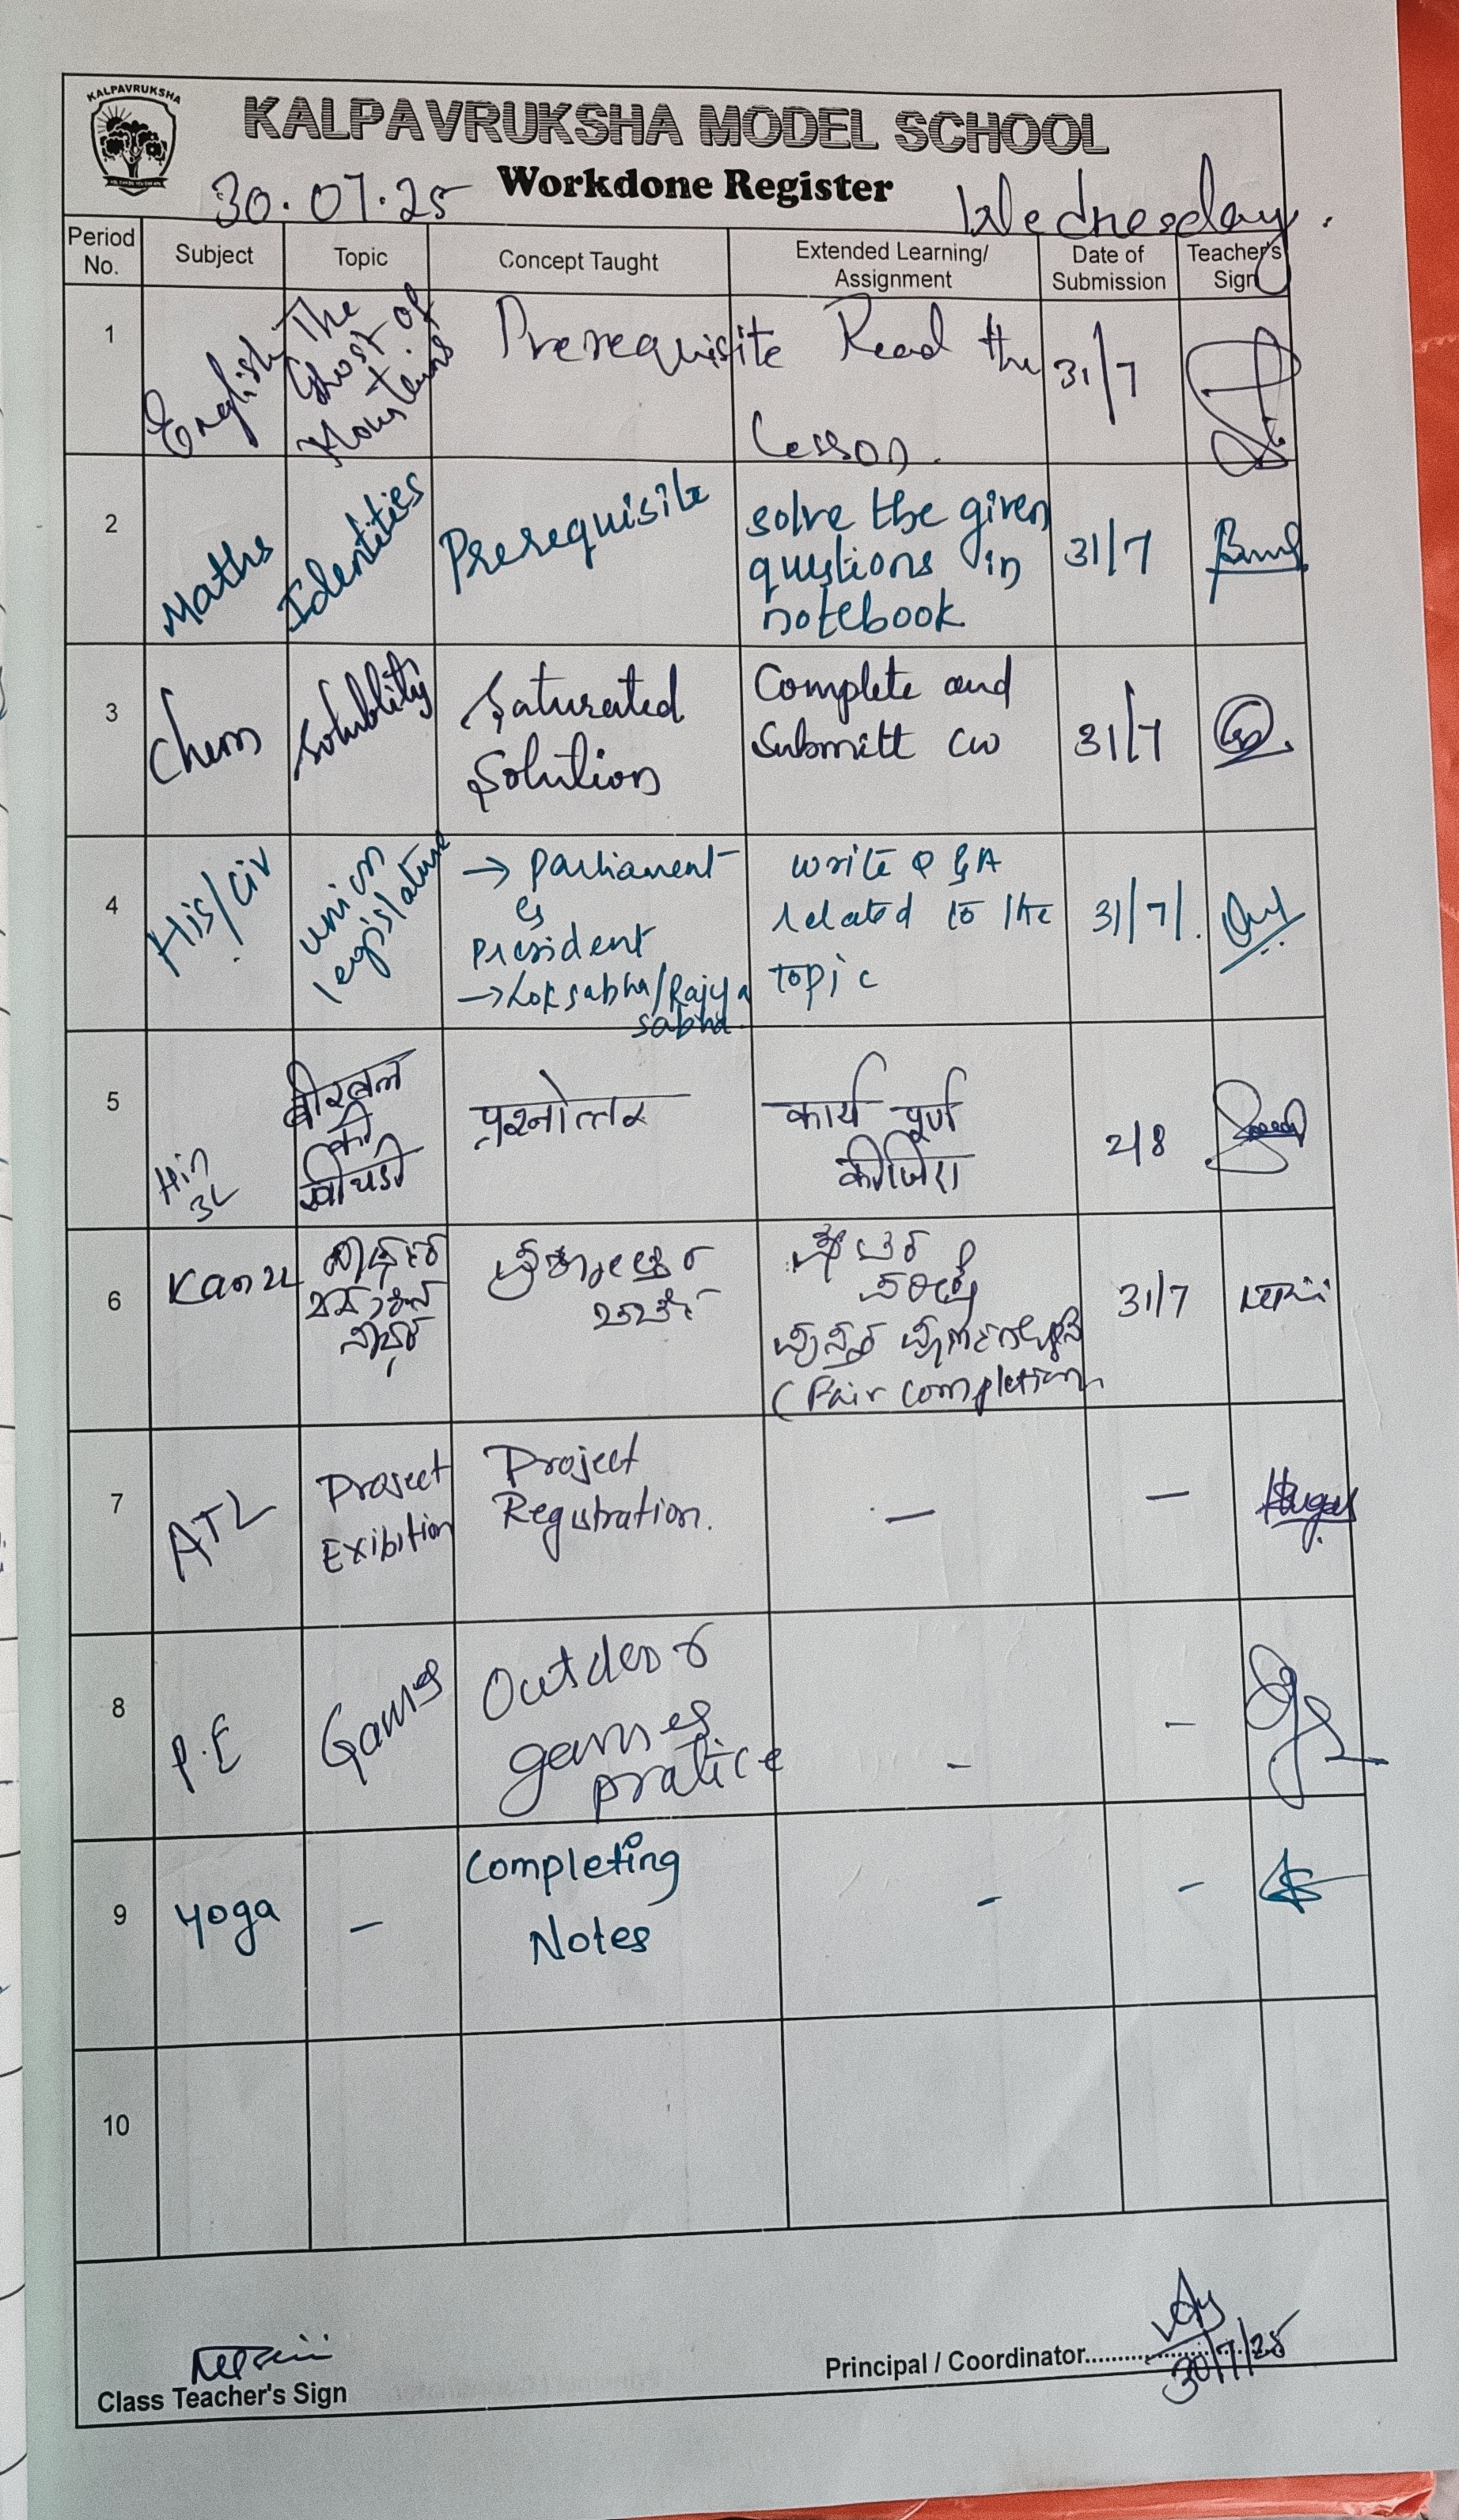 KALPAVRUKSHA
KALPAVRUKSHA MODEL SCHOOL
Workdone Register
30.07.25
Wednesday.
Period No.
Subject
Topic
Concept Taught
Extended Learning/ Assignment
Date of Submission
Teacher's Sign
1
English
The Ghost of Mountains
Prerequisite
Read the
Lesson.
31/7
2
Maths
Identities
Prerequisite
solve the given
questions in
notebook
31/7
3
Chem
Solublity
Saturated
Solution
Complete and
Submitt CW
31/7
4
His/Civ
union
legislature
→ Parliament
President
→ Loksabha/Rajya
sabha
write Q & A
related to the
topic
31/7
5
Hin
3L
बीरबल
की
खीचडी
प्रश्नोत्तर
कार्य पूर्ण
कीजिए
2/8
6
Kan 2L
(Fair completion
31/7
7
ATL
Project
Exibition
Project
Registration.
—
—
8
P.E
Games
Outdoor
games
pratice
-
-
9
Yoga
-
Completing
Notes
-
-
10
Class Teacher's Sign
Principal / Coordinator
30/7/25